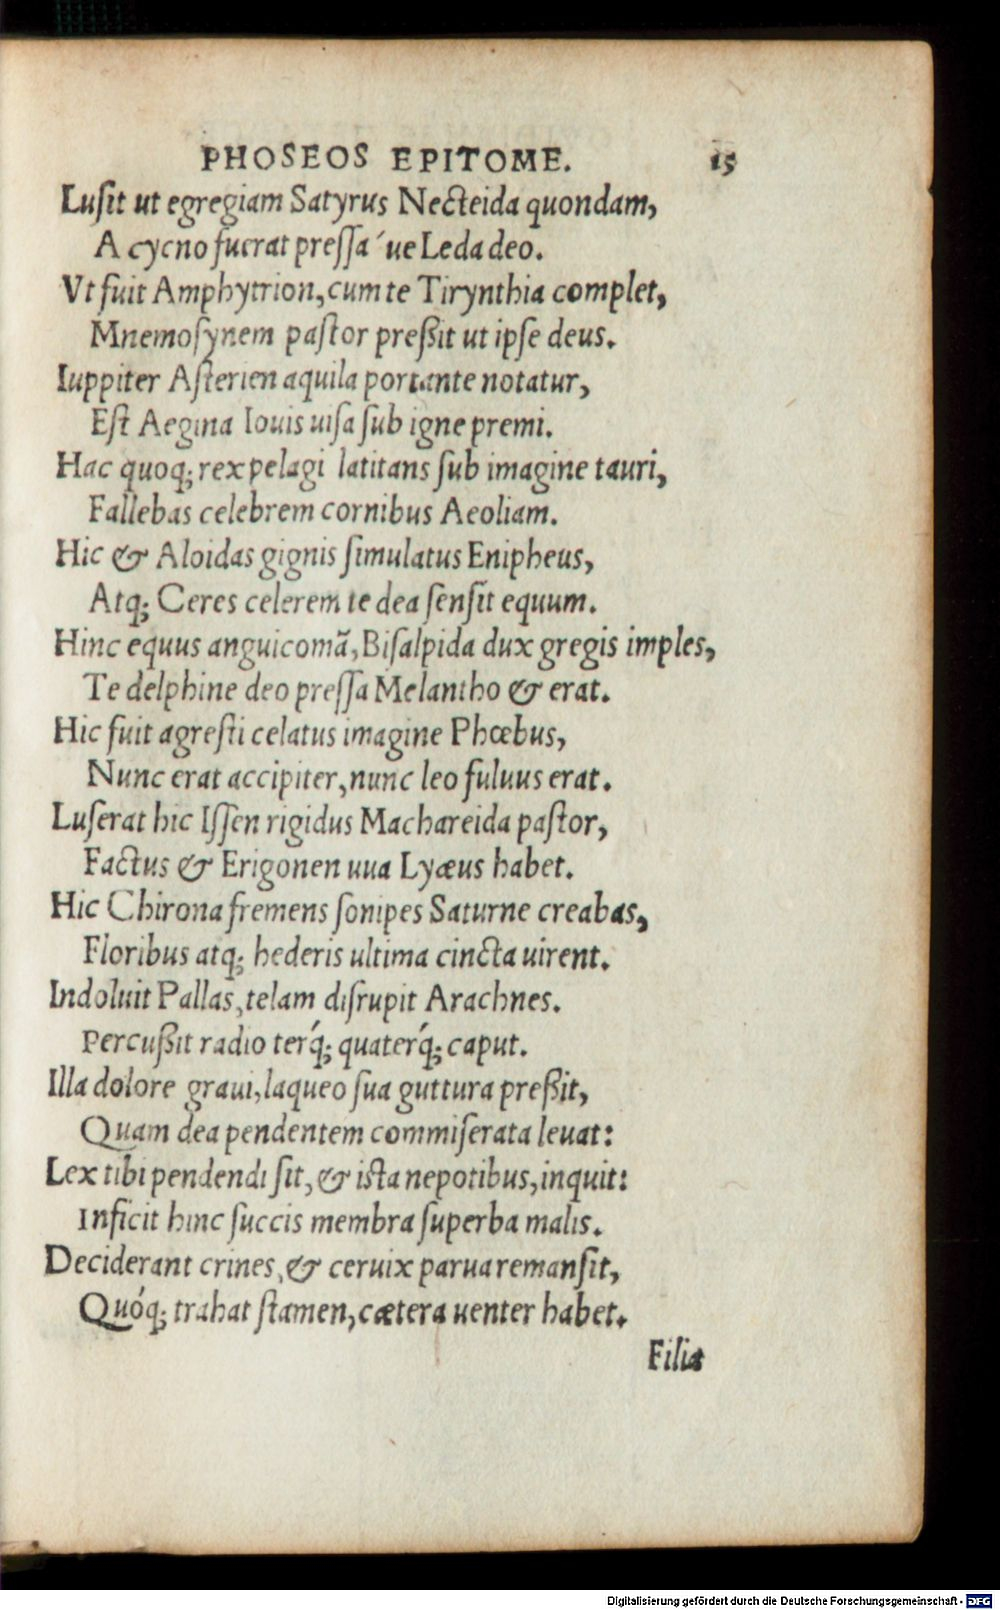 PHOSEOS EPITOME. 15
Luſit ut egregiam Satyrus Necteida quondam,
A cycno fuerat preſſa´ue Leda deo.
Vt fuit Amphytrion, cum te Tirynthia complet,
Mnemoſynem paſtor preßit ut ipſe deus.
Iuppiter Aſterien aquila portante notatur,
Eſt Aegina Iouis uiſa ſub igne premi.
Hac quoq; rex pelagi latitans ſub imagine tauri,
Fallebas celebrem cornibus Aeoliam.
Hic & Aloidas gignis ſimulatus Enipheus,
Atq; Ceres celerem te dea ſenſit equum.
Hinc equus anguicomã, Biſalpida dux gregis imples,
Te delphine deo preſſa Melantho & erat.
Hic fuit agreſti celatus imagine Phœbus,
Nunc erat accipiter, nunc leo fuluus erat.
Luſerat hic Iſſen rigidus Machareida paſtor,
Factus & Erigonen uua Lyæus habet.
Hic Chirona fremens ſonipes Saturne creabas,
Floribus atq; hederis ultima cincta uirent.
Indoluit Pallas, telam diſrupit Arachnes.
Percußit radio terq́; quaterq́; caput.
Illa dolore graui, laqueo ſua guttura preßit,
Quam dea pendentem commiſerata leuat:
Lex tibi pendendi ſit, & iſta nepotibus, inquit:
Inficit hinc ſuccis membra ſuperba malis.
Deciderant crines, & ceruix parua remanſit,
Quóq; trahat ſtamen, cætera uenter habet.
Filia
Digitalisierung gefördert durch die Deutsche Forschungsgemeinschaft - DFG